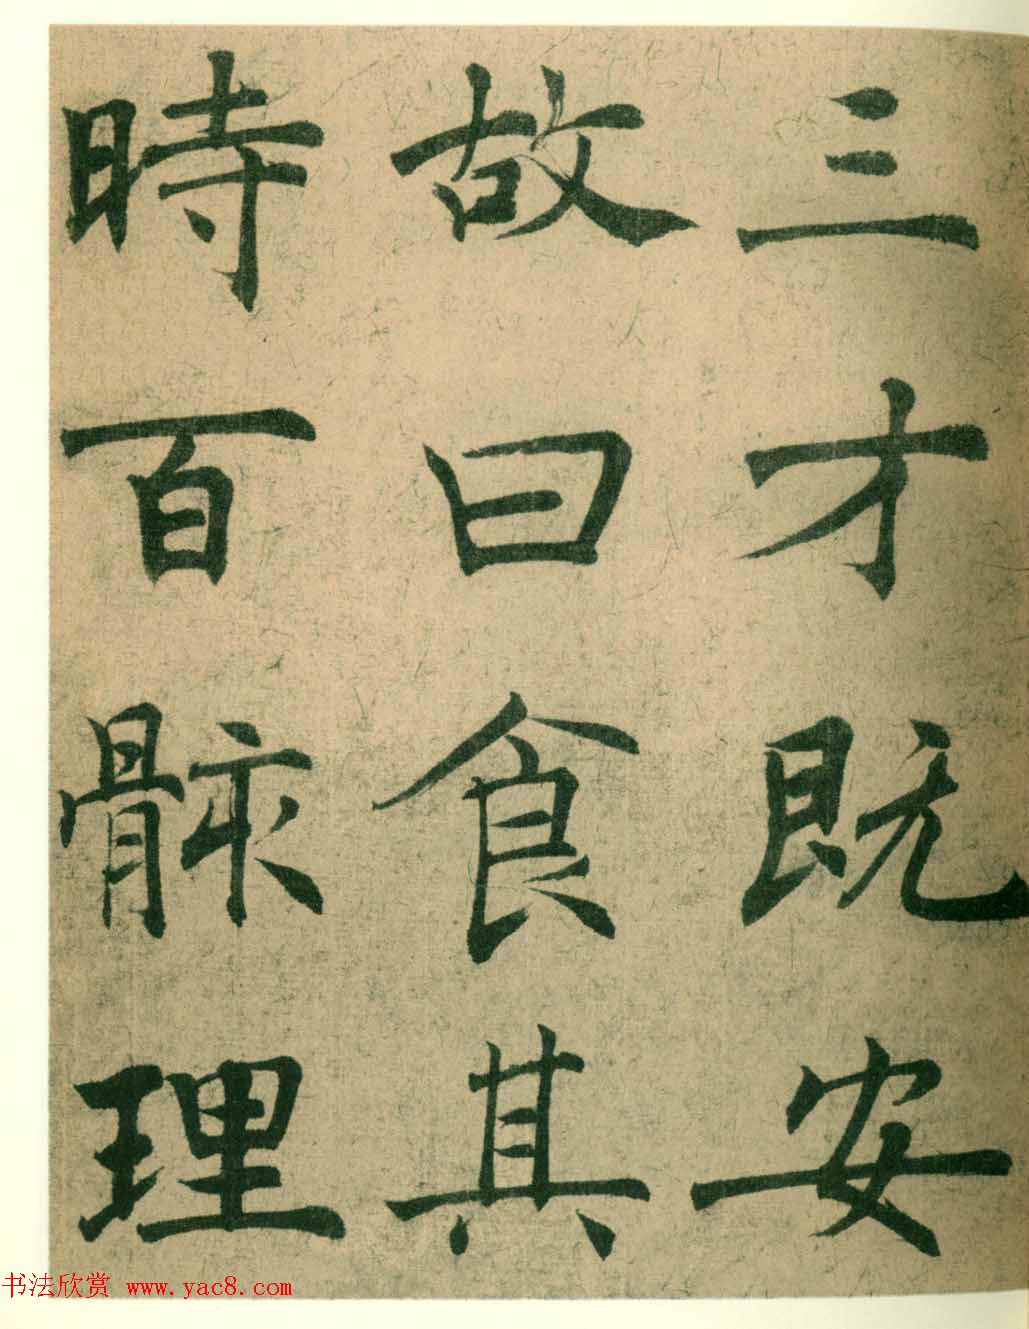 三才既安
故曰食其
時百骸理
书法欣赏 www.yac8.com